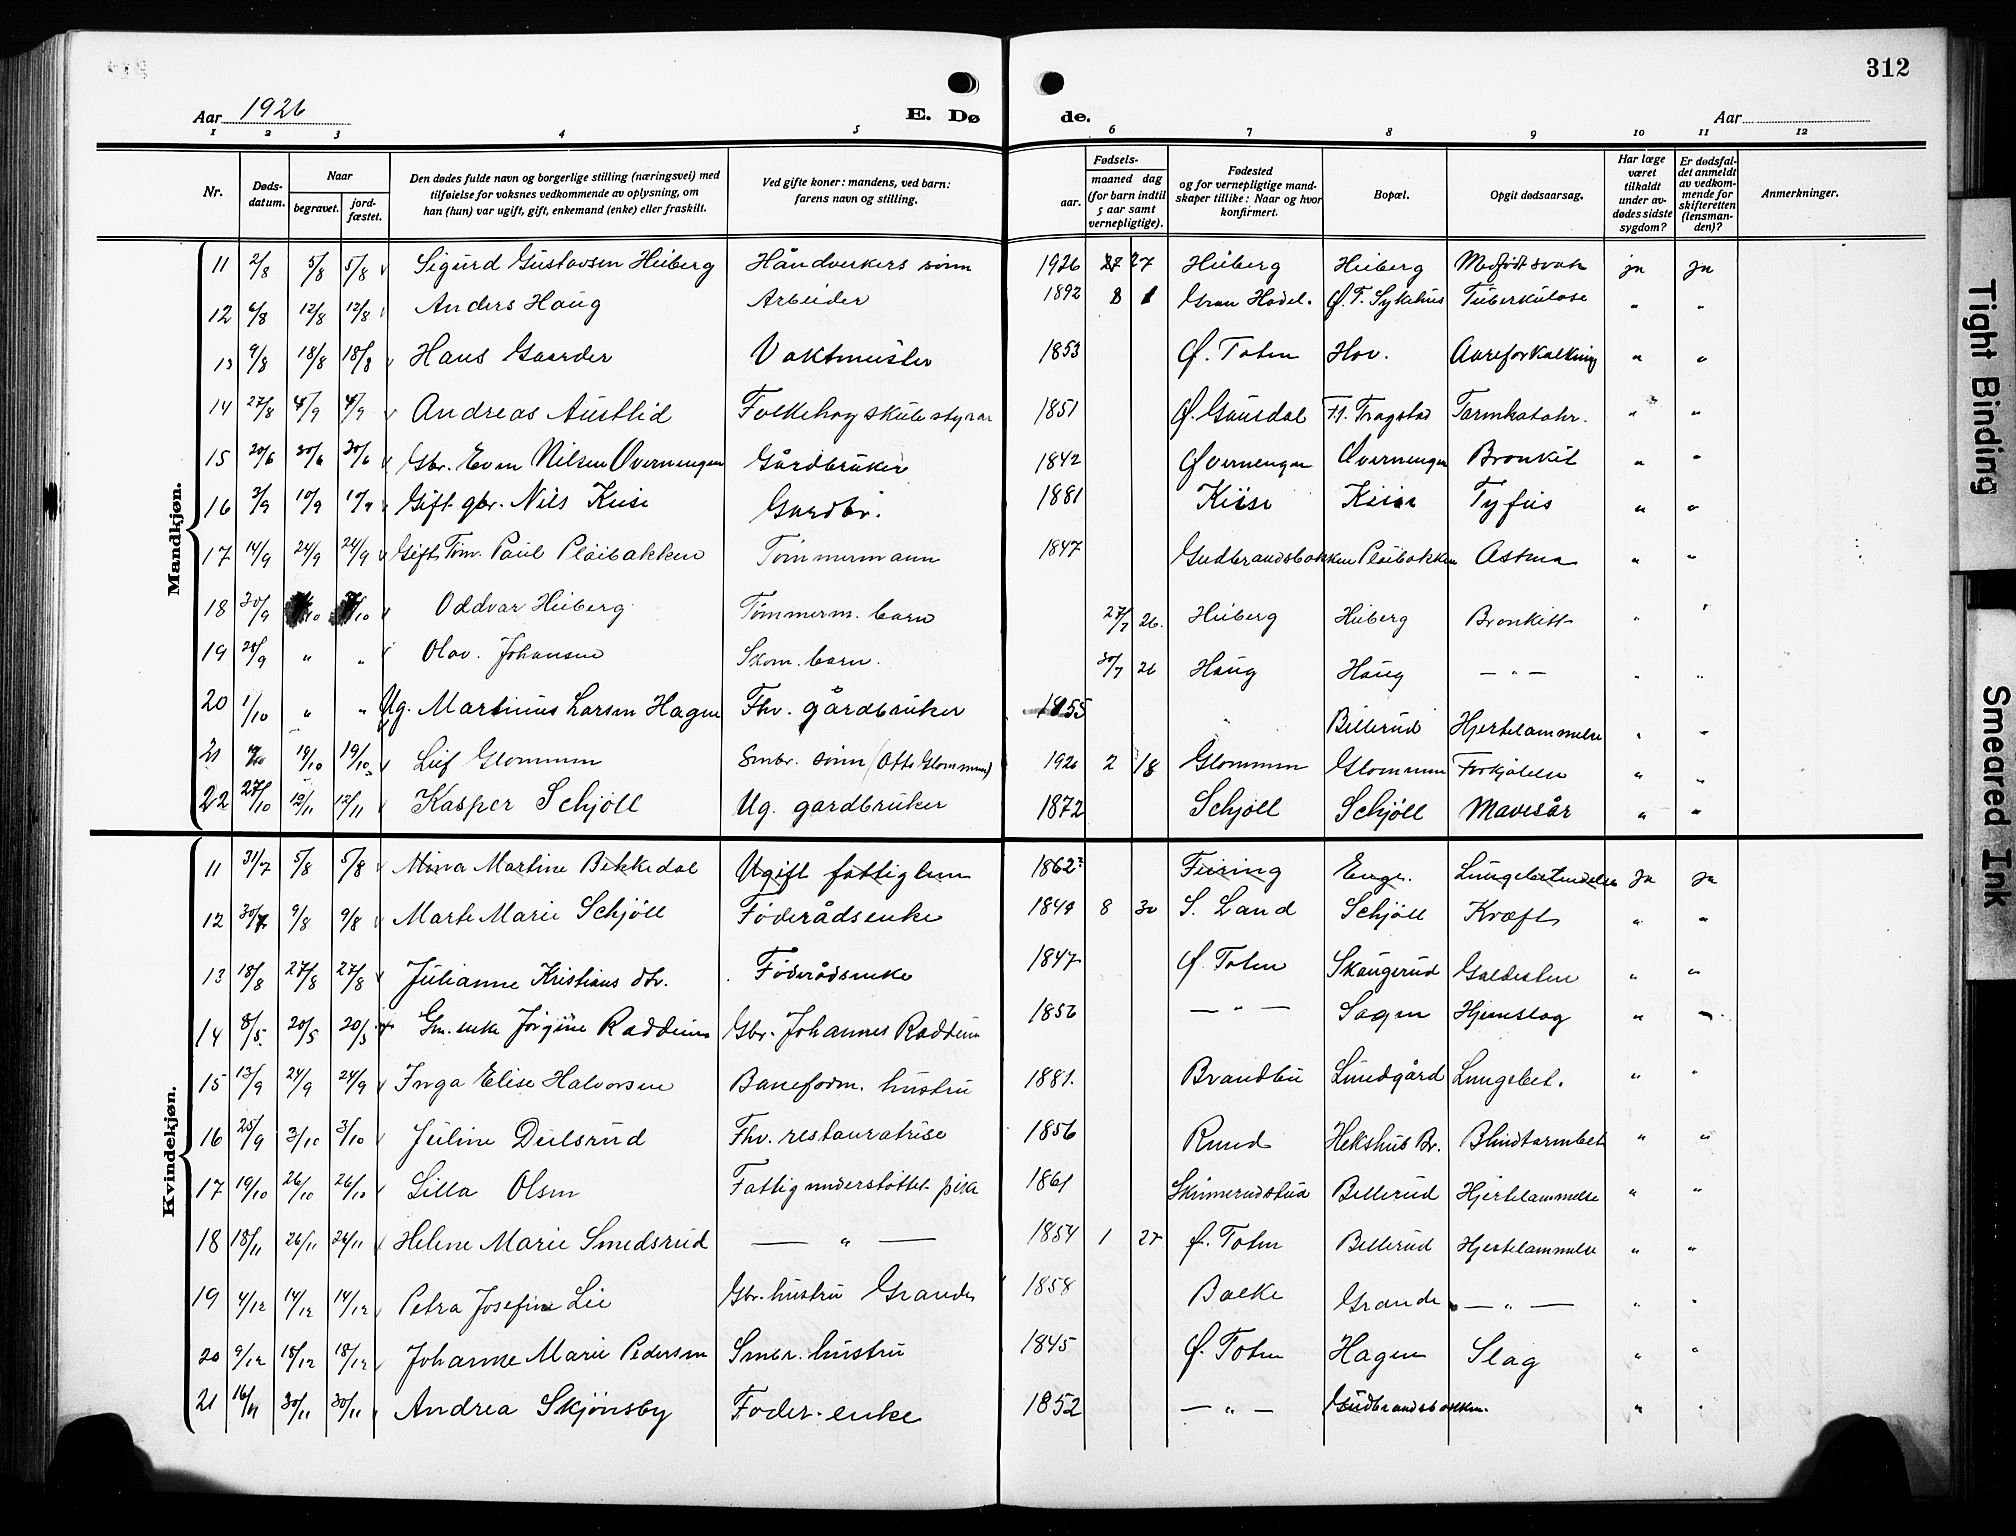 312
Aar 1926
E. Dø de.
Aar
1 2 3 4 5 6 7 8 9 10 11 12
Nr.
Døds-datum.
Naar
begravet.
jord-fæstet.
Den dødes fulde navn og borgerlige stilling (næringsvei) med tilføielse for voksnes vedkommende av oplysning, om han (hun) var ugift, gift, enkemand (enke) eller fraskilt.
Ved gifte koner: mandens, ved barn: farens navn og stilling.
Fødsels-
aar.
maaned dag (for barn indtil 5 aar samt vernepligtige).
Fødested og for vernepligtige mandskaper tillike: Naar og hvor konfirmert.
Bopæl.
Opgit dødsaarsag.
Har læge været tilkaldt under avdødes sidste sygdom?
Er dødsfaldet anmeldt av vedkommende for skifteretten (lensmanden)?
Anmerkninger.
Mandkjøn.
11 2/8 5/8 5/8 Sigurd Gustavsen Heiberg Håndverkers sønn 1926 27 Heiberg Heiberg Medfødt svak ja ja
12 6/8 12/8 12/8 Anders Haug Arbeider 1892 8 1 Gran Hadel. Ø. T. Sykehus Tuberkulose " "
13 9/8 18/8 18/8 Hans Gaarder Vaktmester 1853 Ø. Toten Hov. Aareforkalkning " "
14 27/8 4/9 4/9 Andreas Austlid Folkehøgskulestyrar 1851 Ø. Gausdal Fl. Tragstad Tarmkatahr. " "
15 20/6 30/6 30/6 Gbr. Even Nilsen Øvernengen Gårdbruker 1842 Øvernengen Øvernengen Bronkit " "
16 3/9 10/9 10/9 Gift gbr. Nils Kise Gardbr. 1881 Kise Kise Tyfus " "
17 14/9 24/9 24/9 Gift Tøm. Paul Pløibakken Tømmermann 1847 Gudbrandsbakken Pløibakken Astma " "
18 30/9 /10 /10 Oddvar Heiberg Tømmerm. barn 27/7 26. Heiberg Heiberg Bronkitt "
19 28/9 " " Olav. Johansen Skom. barn. 30/7 26 Haug Haug — " — " "
20 1/10 " " Ug. Martinius Larsen Hagen Fhv. gårdbruker 1855 " Billerud Hjertelammelse " "
21 19/10 19/10 Leif Glommen Smbr. sønn (Otto Glommen) 1926 2 18 Glommen Glommen Forkjølelse " "
22 27/10 12/11 12/11 Kasper Schjøll Ug. gardbruker 1872 Schjøll Schjøll Mavesår " "
Kvindekjøn.
11 31/7 5/8 5/8 Mina Martine Bekkedal Ugift fattiglem 1862? Feiring Enge. Lungebetendelse ja ja
12 30/7 9/8 9/8 Marte Marie Schjöll Föderådsenke 1849 8 30 S. Land Schjöll Kræft " "
13 18/8 27/8 27/8 Julianne Kristians dtr. Föderådsenke 1847 Ø. Toten Skaugerud Galdesten " "
14 8/5 20/5 20/5 Gm. enke Jörgine Raddum Gbr. Johannes Raddum 1856 — " — Sagen Hjerneslag "
15 13/9 24/9 24/9 Inga Elise Halvorsen Baneform. hustru 1881. Brandbu Lundgård Lungebet. " "
16 25/9 3/10 3/10 Juline Dulsrud Fhv. restauratrise 1856 Rund Hekshus Br. Blindtarmbet " "
17 19/10 26/10 26/10 Lilla Olsen Fattigunderstøttet pike 1861 Skinnerudstud Billerud Hjertelammelse " "
18 18/11 26/11 26/11 Helene Marie Smedsrud — " — 1854 1 27 Ø. Toten Billerud Hjertelammelse " "
19 4/12 14/12 14/12 Petra Josefine Lie Gbr. hustru Grande 1858 Balke Grande — " — " "
20 9/12 18/12 18/12 Johanne Marie Pedersen Smbr. hustru 1845 Ø. Toten Hagen Slag " "
21 16/11 30/11 30/11 Andrea Skjönsby Föder. enke 1852 — " — Gudbrandsbakken. " "
Tight Binding
Smeared Ink